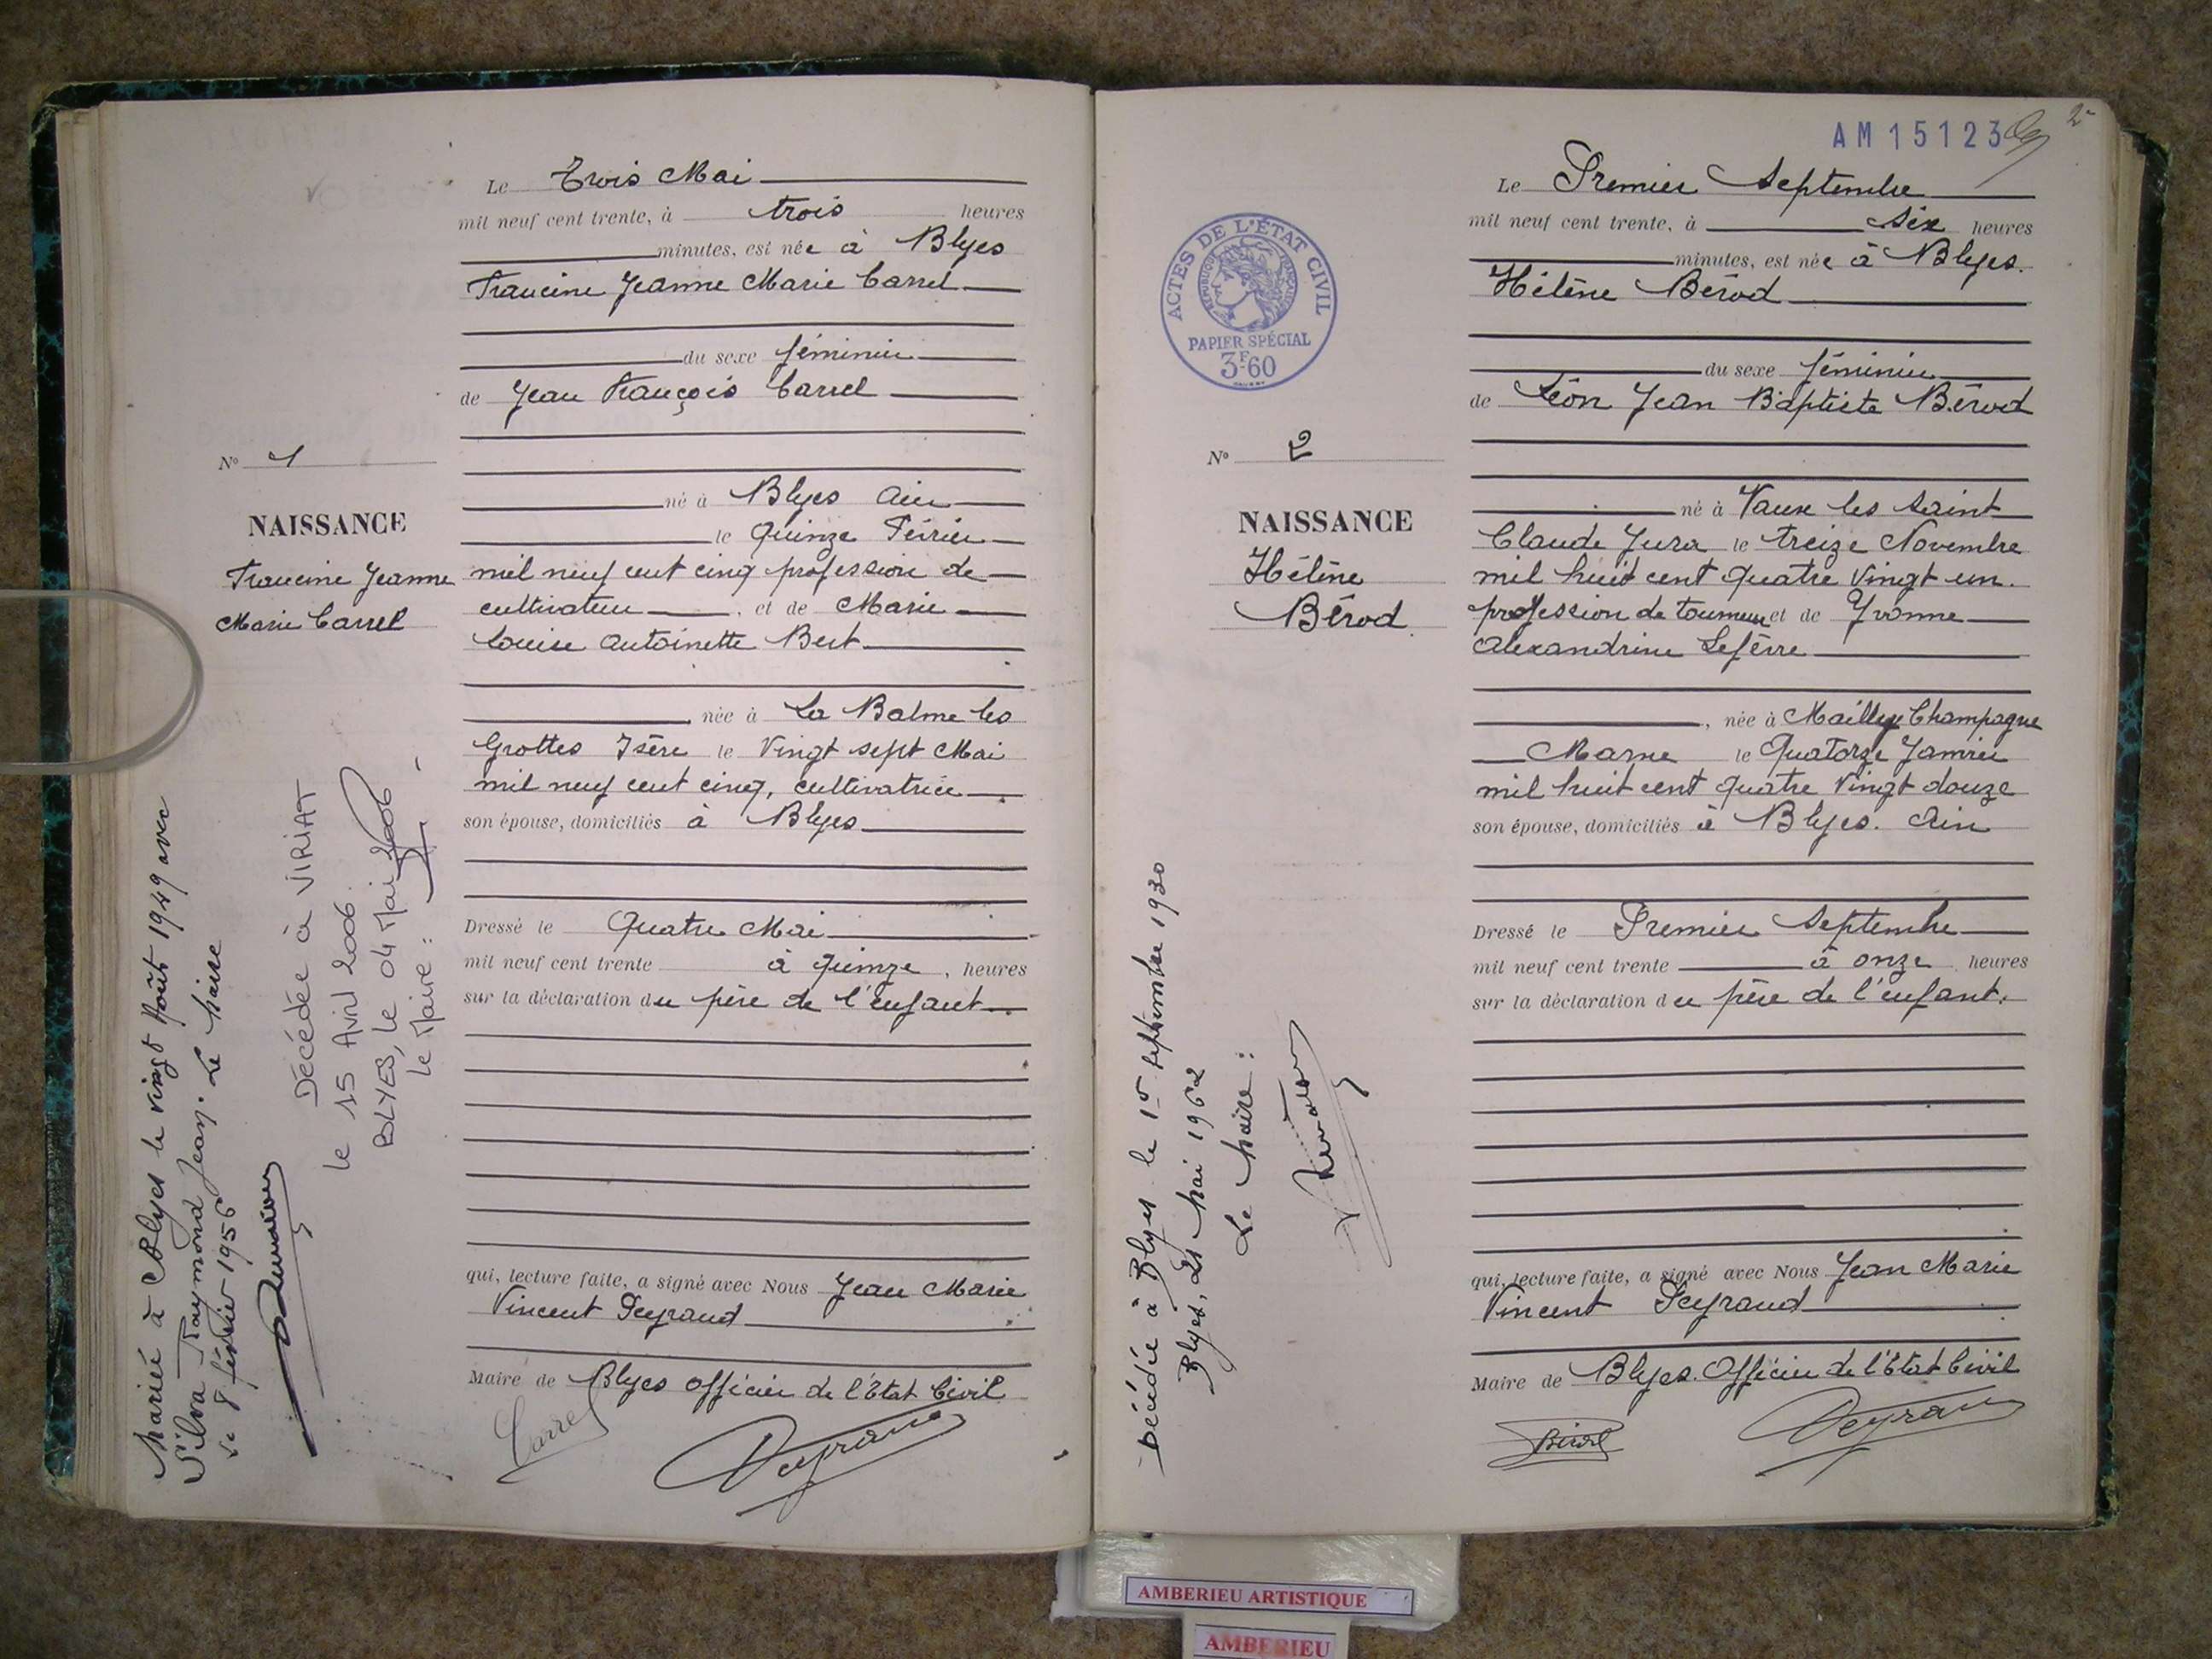 Le Trois Mai
mil neuf cent trente, à trois heures
minutes, est née à Blyes
Francine Jeanne Marie Carrel
du sexe féminin
de Jean François Carrel
né à Blyes Ain
le Quinze Février
mil neuf cent cinq profession de
cultivateur, et de Marie
Louise Antoinette Bert
née à La Balme les
Grottes Isère le Vingt sept Mai
mil neuf cent cinq, cultivatrice
son épouse, domiciliés à Blyes
Dressé le Quatre Mai
mil neuf cent trente à quinze, heures
sur la déclaration du père de l'enfant
qui, lecture faite, a signé avec Nous Jean Marie
Vincent Peyraud
Maire de Blyes Officier de l'Etat Civil
Carrel
Peyraud
No 1
NAISSANCE
Francine Jeanne
Marie Carrel
Marié à Blyes le vingt Août 1949 avec
Silva Raymond Jean. Le Maire
le 8 février 1956
Décédée à VIRIAT
le 15 Avril 2006.
BLYES, le 04 Mai 2006
le Maire :
AM 15123
2
Le Premier Septembre
mil neuf cent trente, à six heures
minutes, est née à Blyes.
Hélène Bérod
du sexe féminin
de Léon Jean Baptiste Bérod
né à Vaux les Saint
Claude Jura le treize Novembre
mil huit cent quatre vingt un.
profession de tourneur et de Yvonne
Alexandrine Lefèvre
, née à Mailly Champagne
Marne le Quatorze Janvier
mil huit cent quatre vingt douze
son épouse, domiciliés à Blyes. Ain
Dressé le Premier Septembre
mil neuf cent trente à onze heures
sur la déclaration du père de l'enfant.
qui, lecture faite, a signé avec Nous Jean Marie
Vincent Peyraud
Maire de Blyes. Officier de l'Etat Civil
Bérod
Peyraud
ACTES DE L'ÉTAT CIVIL
RÉPUBLIQUE FRANÇAISE
PAPIER SPÉCIAL
3F60
No 2
NAISSANCE
Hélène
Bérod
Décédée à Blyes le 1er septembre 1930
Blyes, le 21 Mai 1962
Le Maire :
AMBERIEU ARTISTIQUE
AMBERIEU